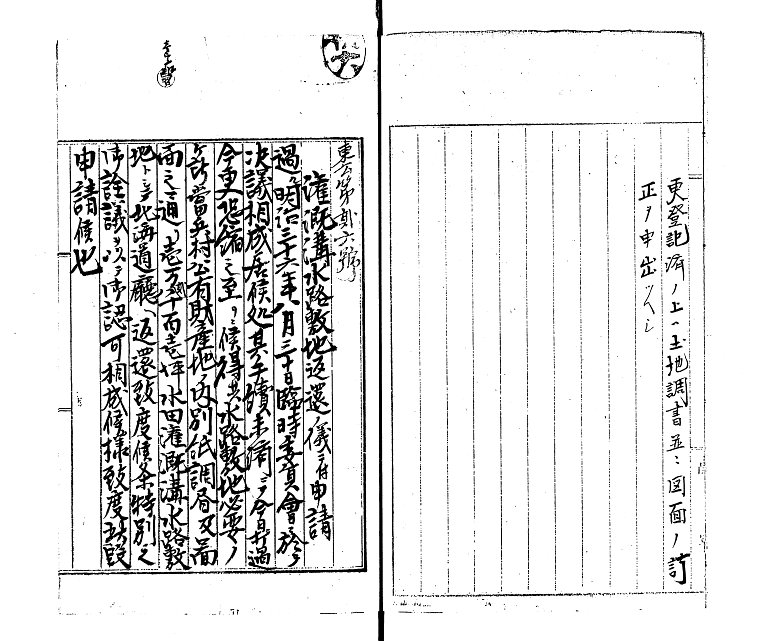 更登記済ノ上ハ土地調書並ニ図面ノ訂
正ヲ申出ヘシ
東公第弐六號
灌漑溝水路敷地返還ノ儀ニ付申請
過ル明治三十六年八月三十日臨時委員會ニ於テ
決議相成居候処其手續未済ニテ今日打過
今更恐縮之至ニ候得共水路敷地必要ノ
為當村公有財産地ノ内別紙調書及圖
面之通リ壱万 千 百壱坪水田灌漑溝水路敷
地トシテ北海道廳ヘ返還致度候条特別之
御詮議ヲ以テ御認可相成候様致度此段
申請候也